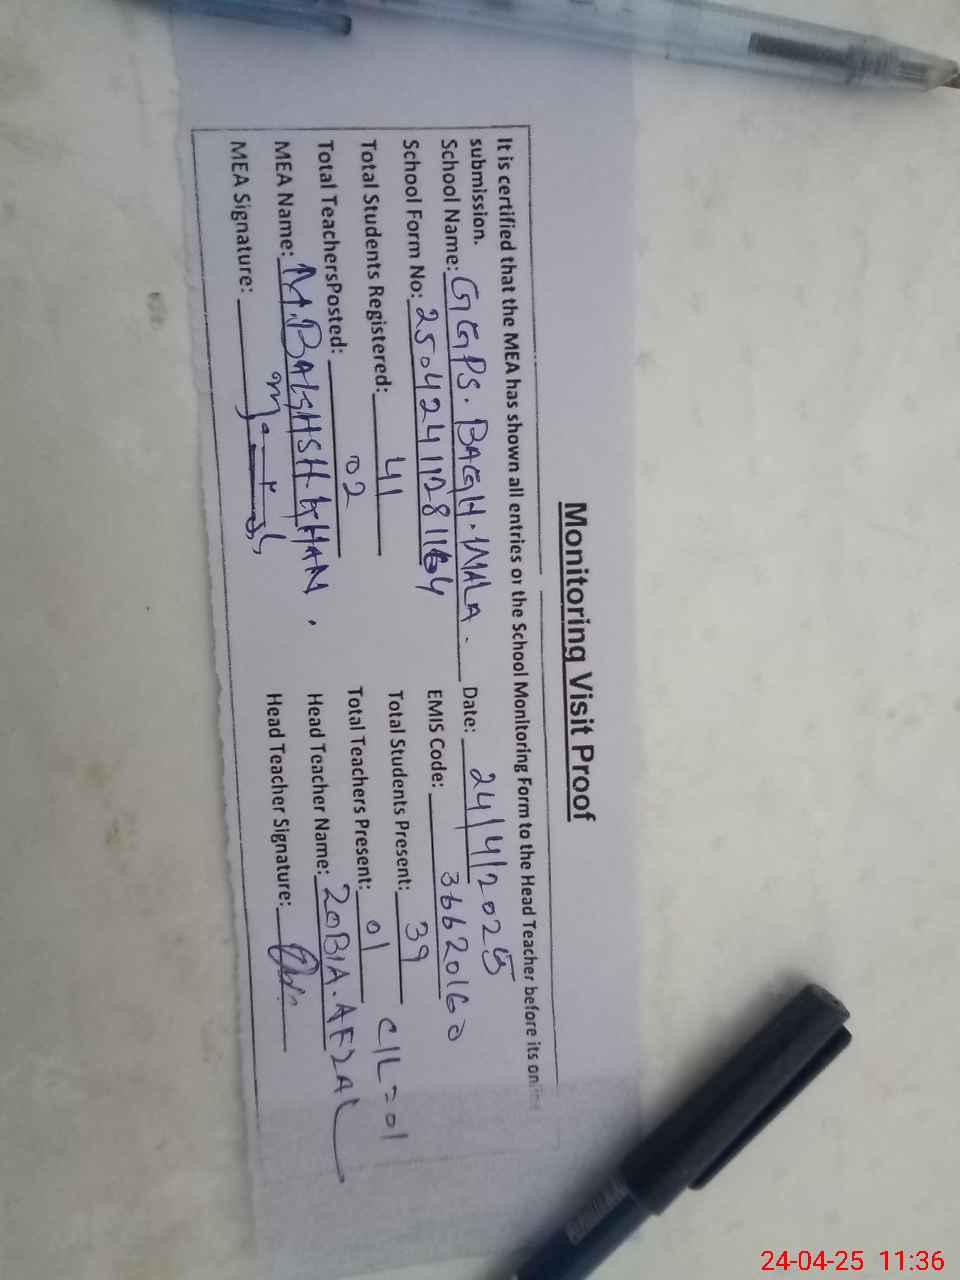 Monitoring Visit Proof
It is certified that the MEA has shown all entries of the School Monitoring Form to the Head Teacher before its online
submission.
School Name: GGPS. BAGH. WALA. Date: 24/4/2025
School Form No: EMIS Code: 36620160
Total Students Registered: 41 Total Students Present: 39 C/L = 01
Total TeachersPosted: 02 Total Teachers Present: 01
MEA Name: M. KHAN. Head Teacher Name: ZOBIA. AFZAL
MEA Signature: Head Teacher Signature:
24-04-25 11:36